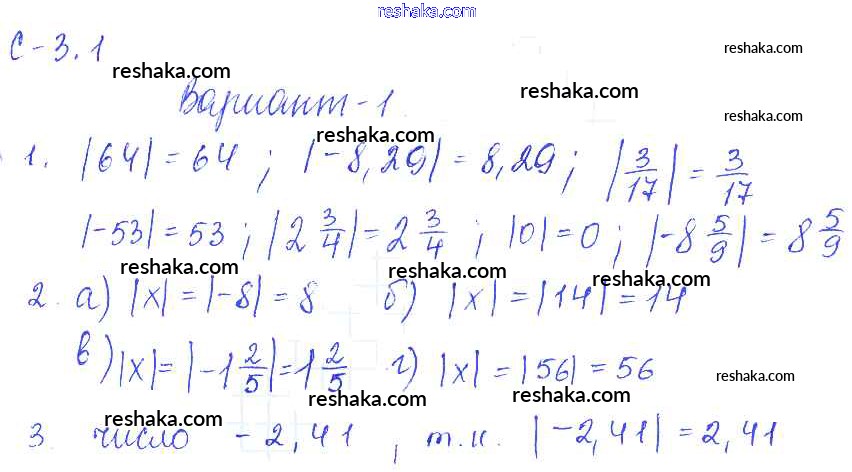 www.reshaka.com
С-3.1
reshaka.com
reshaka.com
reshaka.com
Вариант-1
reshaka.com
reshaka.com
1. |64| = 64 ; |-8,29| = 8,29 ; |3/17| = 3/17
reshaka.com
|-53| = 53 ; |2 3/4| = 2 3/4 ; |0| = 0 ; |-8 5/9| = 8 5/9
reshaka.com
reshaka.com
reshaka.com
2. а) |x| = |-8| = 8 б) |x| = |14| = 14
в) |x| = |-1 2/5| = 1 2/5 г) |x| = |56| = 56
reshaka.com
reshaka.com
reshaka.com
reshaka.com
3. число -2,41 , т.к. |-2,41| = 2,41